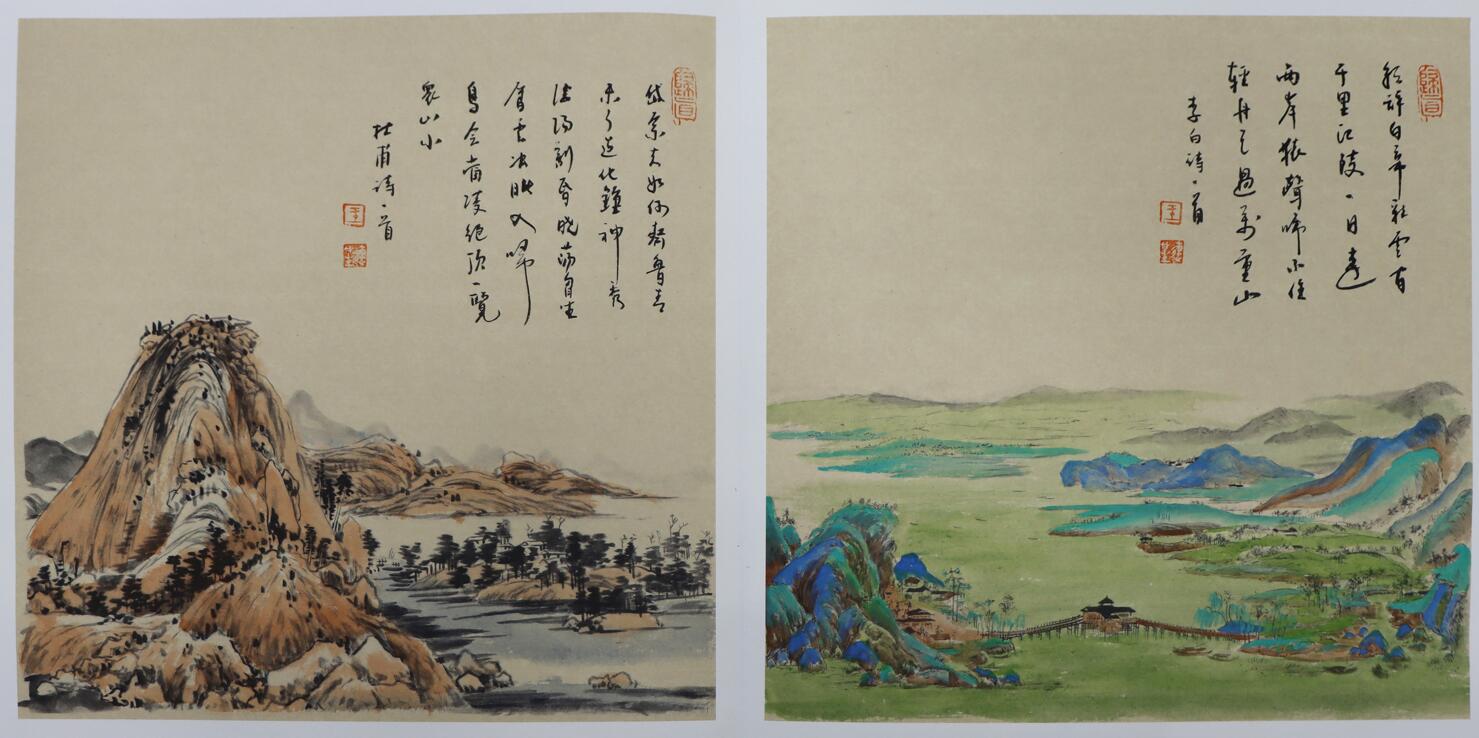 岱宗夫如何齊魯青
未了造化鍾神秀
陰陽割昏曉蕩胸生
層雲決眦入歸
鳥會當凌絕頂一覽
衆山小
杜甫詩一首
王
朝辞白帝彩雲間
千里江陵一日還
兩岸猿聲啼不住
輕舟已過萬重山
李白詩一首
王